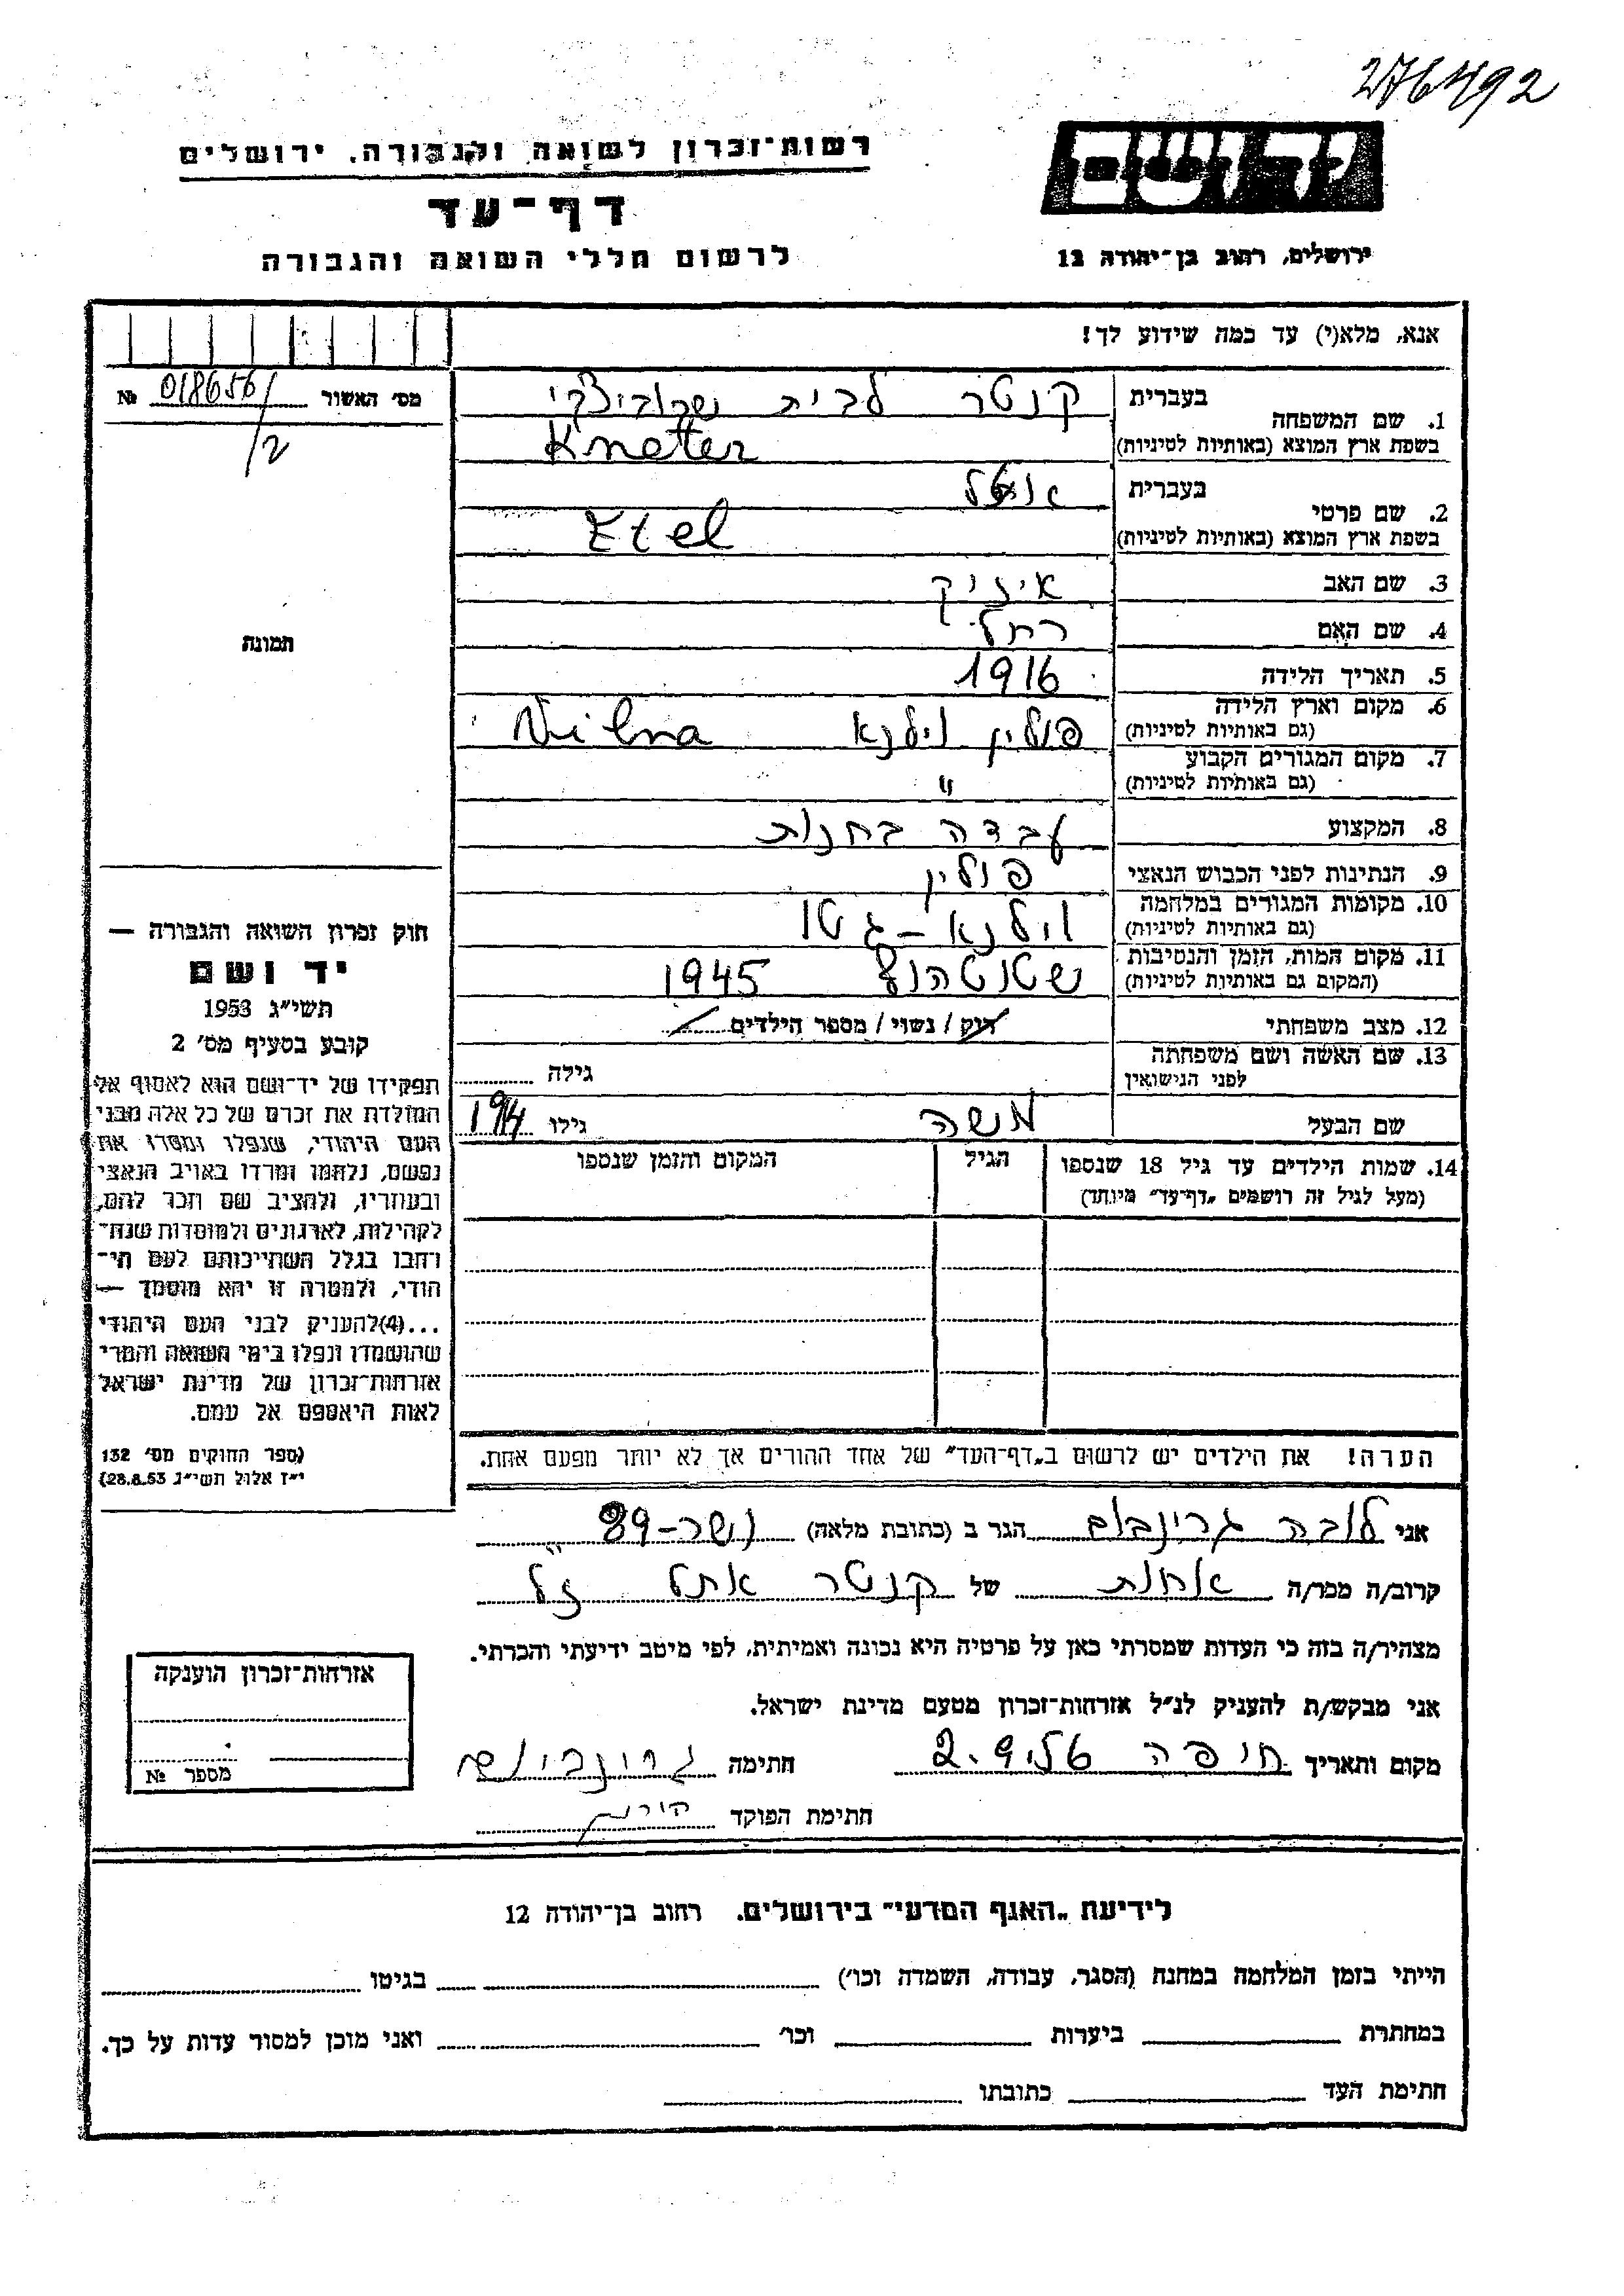 276492
רשות־זכרון לשואה וקגבורה, ירושלים
דף־עד
לרשום חללי השואה והגבורה
יד ושם
ירושלים, רחוב בן־יהודה 12
אנא, מלא(י) עד כמה שידוע לך!
מס׳ האשור 018656/ №
/2
1. שם המשפחה בעברית קנטר לבית
בשפת ארץ המוצא (באותיות לטיניות) Knetter
2. שם פרטי בעברית
בשפת ארץ המוצא (באותיות לטיניות) Etel
3. שם האב איזיק
4. שם האם רחל
5. תאריך הלידה 1916
6. מקום וארץ הלידה (גם באותיות לטיניות) פולין וילנא Vilna
7. מקום המגורים הקבוע (גם באותיות לטיניות) "
8. המקצוע עבדה בחנות
9. הנתינות לפני הכבוש הנאצי פולין
10. מקומות המגורים במלחמה (גם באותיות לטיניות) וילנא – גטו
11. מקום המות, הזמן והנסיבות (המקום גם באותיות לטיניות) שטוטהוף 1945
12. מצב משפחתי רוק / נשוי / מספר הילדים –
13. שם האשה ושם משפחתה לפני הנישואין גילה
שם הבעל משה גילו 1914
14. שמות הילדים עד גיל 18 שנספו (מעל לגיל זה רושמים „דף־עד״ מיוחד) הגיל המקום והזמן שנספו
הערה! את הילדים יש לרשום ב„דף־העד״ של אחד ההורים אך לא יותר מפעם אחת.
תמונה
חוק זכרון השואה והגבורה —
יד ושם
תשי״ג 1953
קובע בסעיף מס׳ 2
תפקידו של יד־ושם הוא לאסוף אל
המולדת את זכרם של כל אלה מבני
העם היהודי, שנפלו ומסרו את
נפשם, נלחמו ומרדו באויב הנאצי
ובעוזריו, ולהציב שם וזכר להם,
לקהילות, לארגונים ולמוסדות שנח־
רבו בגלל השתייכותם לעם הי־
הודי, ולמטרה זו יהא מוסמך —
...(4)להעניק לבני העם היהודי
שהושמדו ונפלו בימי השואה והמרי
אזרחות־זכרון של מדינת ישראל
לאות היאספם אל עמם.
(ספר החוקים מס׳ 132
י״ז אלול תשי״ג 28.8.53)
אני לובה גרינבוים הגר ב (כתובת מלאה) נשר – 89
קרוב/ה מכר/ה אחות של קנטר אתל ז״ל
מצהיר/ה בזה כי העדות שמסרתי כאן על פרטיה היא נכונה ואמיתית, לפי מיטב ידיעתי והכרתי.
אני מבקש/ת להעניק לנ״ל אזרחות־זכרון מטעם מדינת ישראל.
מקום ותאריך חיפה 2.9.56 חתימה גרונבוים
חתימת הפוקד
אזרחות־זכרון הוענקה
מספר №
לידיעת „האגף המדעי״ בירושלים. רחוב בן־יהודה 12
הייתי בזמן המלחמה במחנה (הסגר, עבודה, השמדה וכו׳) בגיטו
במחתרת ביערות וכו׳ ואני מוכן למסור עדות על כך.
חתימת העד כתובתו